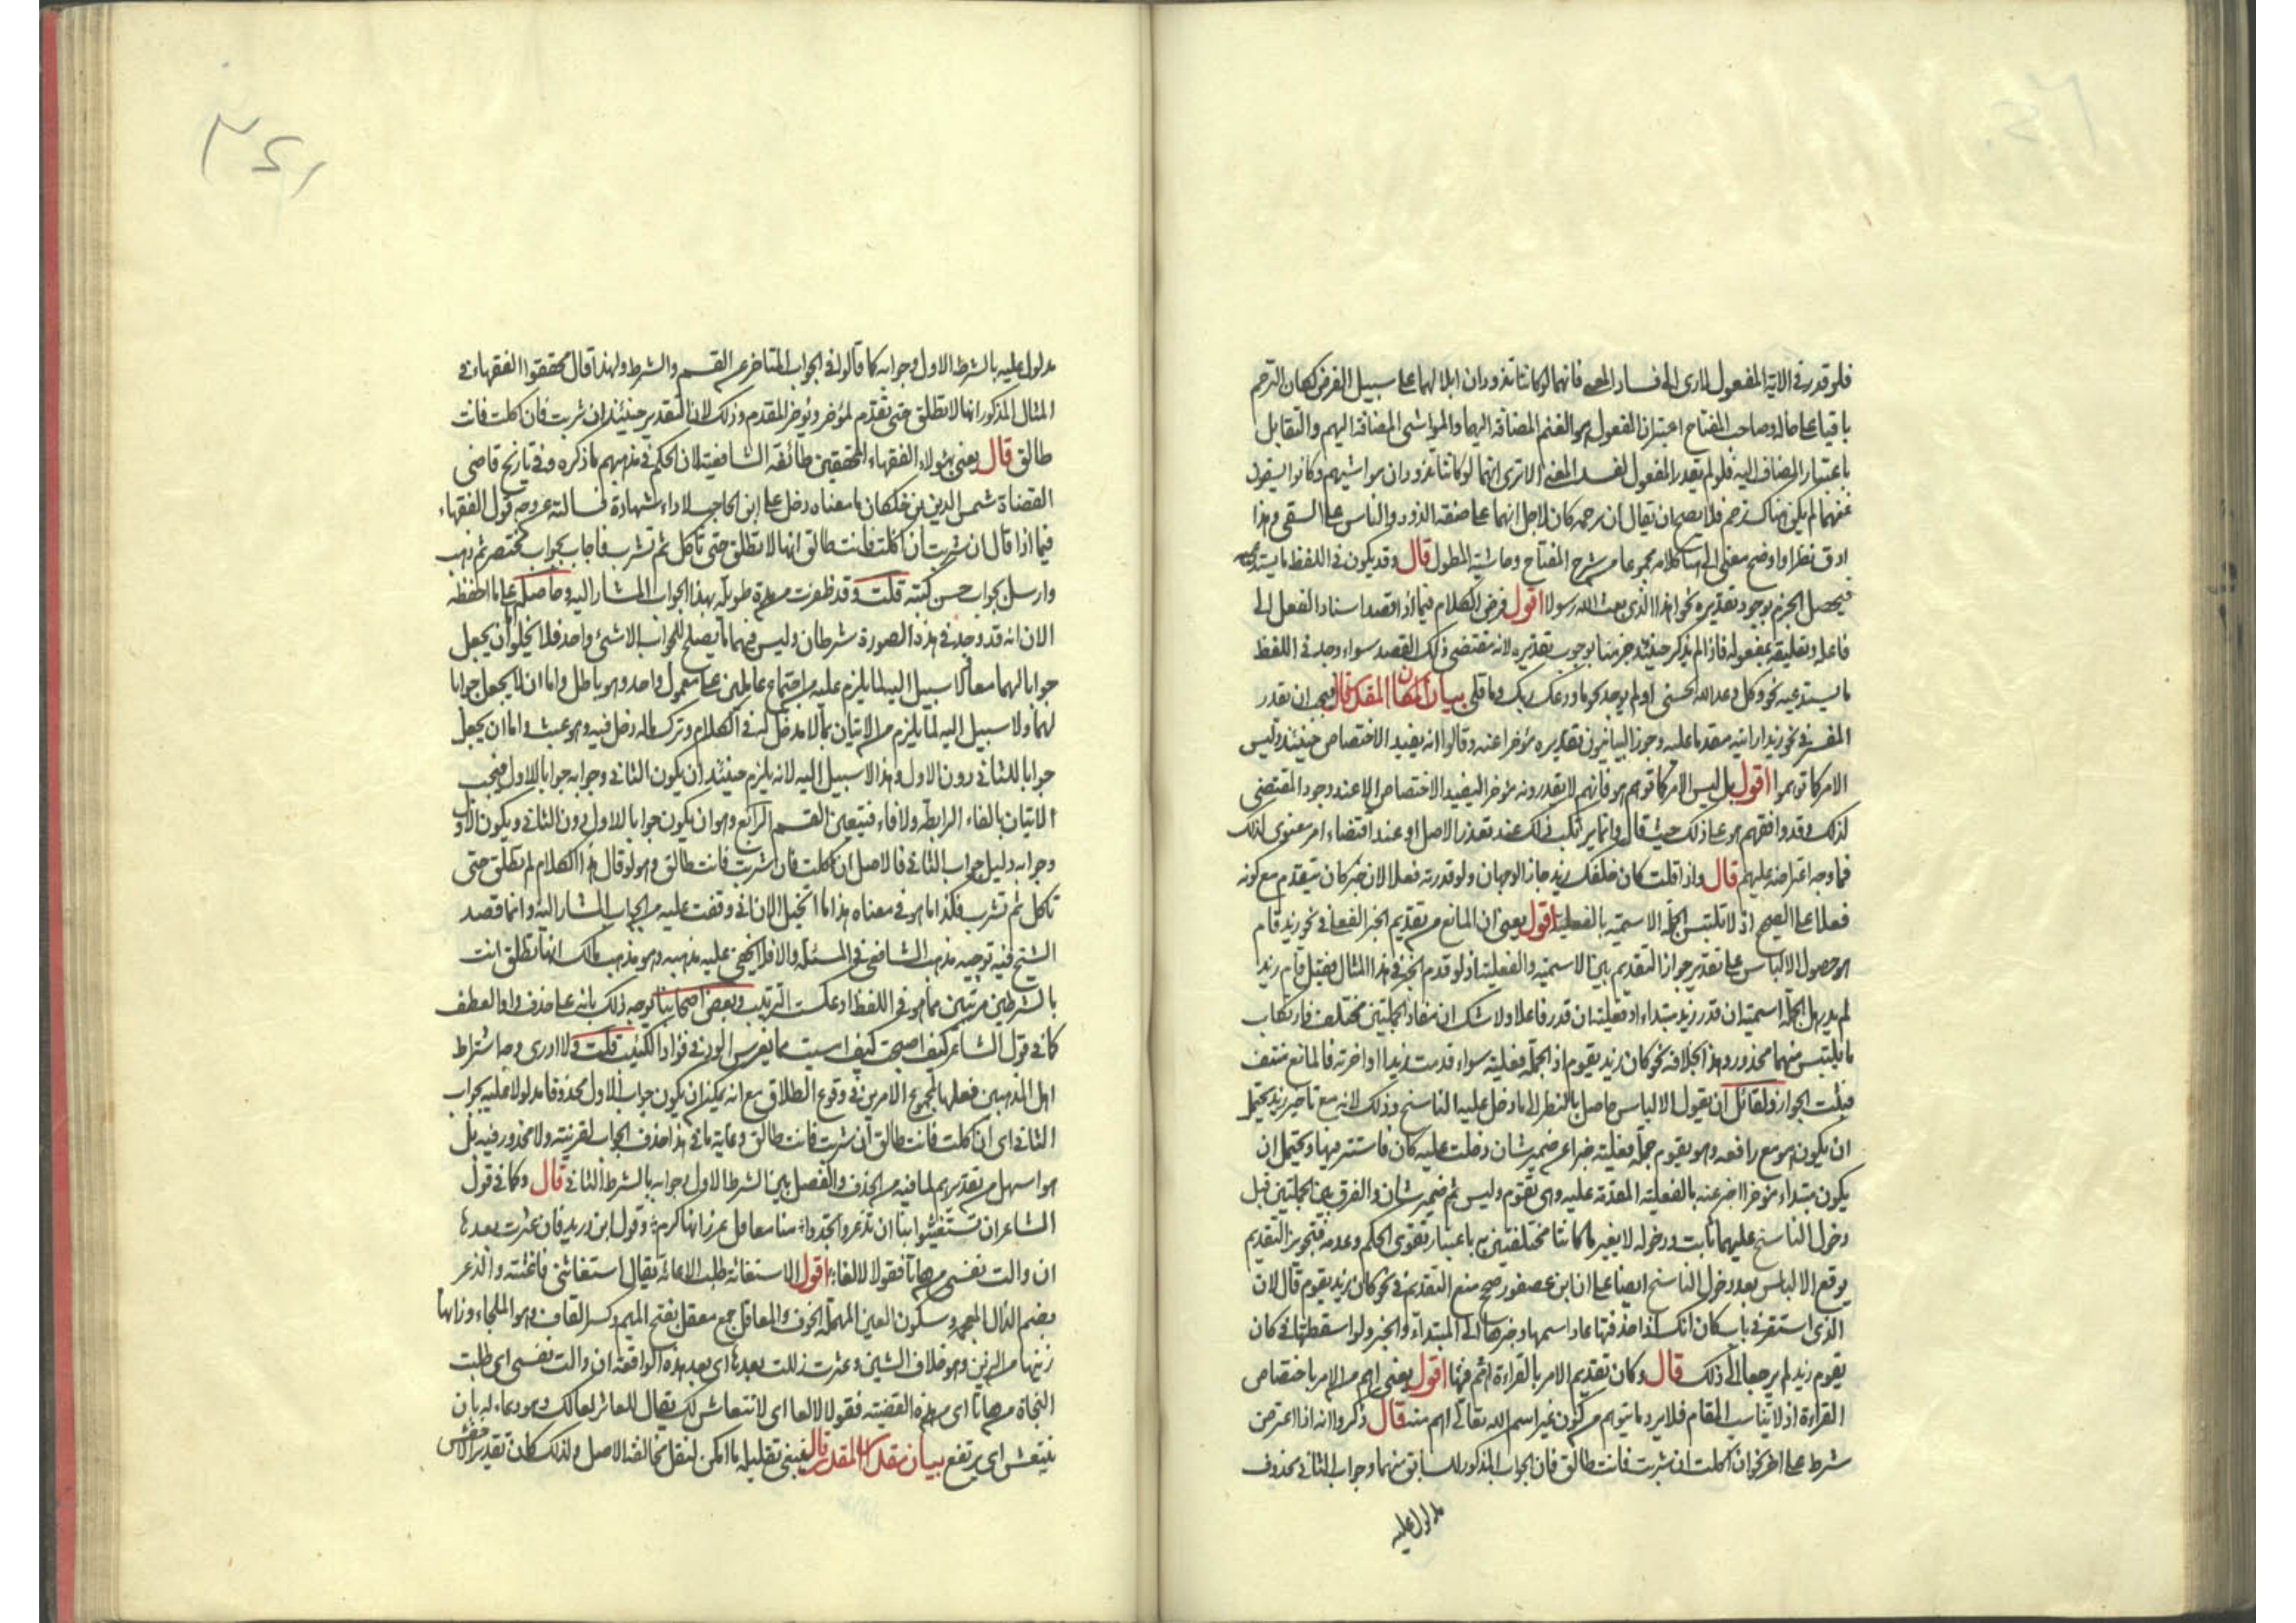 فلو قدر في الآية المفعول لادى الى فساد المعنى فانهما لو كانتا تذودان ابلا لهما على سبيل الفرض لكان الترحم
باقيا على حاله وصاحب المفتاح اعتبر ان المفعول هو الغنم المضافة اليهما والمواشى المضافة اليهم والتقابل
باعتبار المضاف اليه فلو لم يقدر المفعول لفسد المعنى الا ترى انهما لو كانتا تذودان مواشيهم وكانوا يسقون
غنمهما لم يكن هناك ترحم فلا يصح ان يقال ان ترحمه كان لاجل انهما على صفة الذود والناس على السقى وهذا
ادق نظرا واوضح معنى الى هنا كلامه مجموعا من شرح المفتاح وحاشية المطول قال وقد يكون في اللفظ ما يستدعيه
فيحصل الجزم بوجود تقديره نحو اهذا الذى بعث الله رسولا اقول فرض الكلام فيما اذا قصد اسناد الفعل الى
فاعله وتعليقه بمفعوله فاذا لم يذكر حينئذ جزمنا بوجوب تقديره لانه مقتضى ذلك القصد سواء وجد في اللفظ
ما يستدعيه نحو وكل وعد الله الحسنى او لم يوجد نحو ما ودعك ربك وما قلى بيان مكان المقدر قال فيجب ان يقدر
المفسر في نحو زيدا رايته مقدما عليه وجوز البيانيون تقديره مؤخرا عنه وقالوا انه يفيد الاختصاص حينئذ وليس
الامر كما توهموا اقول بل ليس الامر كما توهم هو فانهم لا يقدرونه مؤخرا ليفيد الاختصاص الا عند وجود المقتضى
لذلك وقد وافقهم هو على ذلك حيث قال وانما يرتكب ذلك عند تعذر الاصل او عند اقتضاء امر معنوى لذلك
فما وجه اعتراضه عليهم قال واذا قلت كان خلفك زيد جاز الوجهان ولو قدرته فعلا لان خبر كان يتقدم مع كونه
فعلا على الصحيح اذ لا تلتبس الجملة الاسمية بالفعلية اقول يعنى ان المانع من تقديم الخبر الفعلى في نحو زيد قام
هو حصول الالباس على تقدير جواز التقديم بين الاسمية والفعلية اذ لو قدم الخبر في هذا المثال فقيل قام زيد
لم يدر هل الجملة اسمية ان قدر زيد مبتداء او فعلية ان قدر فاعلا ولا شك ان مفاد الجملتين مختلف فارتكاب
ما يلتبس منهما محذور وهذا بخلافه نحو كان زيد يقوم اذ الجملة فعلية سواء قدمت زيدا او اخرته فالمانع منتف
فيثبت الجواز ولقائل ان يقول الالباس حاصل بالنظر الى ما دخل عليه الناسخ وذلك لانه مع تاخير زيد يحتمل
ان يكون هو مع رافعه وهو يقوم جملة فعلية خبرا عن ضمير شان دخلت عليه كان فاستتر فيها ويحتمل ان
يكون مبتداء مؤخرا اخبر عنه بالفعلية المقدمة عليه وهى يقوم وليس ثم ضمير شان والفرق بين الجملتين قبل
دخول الناسخ عليهما ثابت ودخوله لا يغير ما كانتا مختلفتين به باعتبار تقوى الحكم وعدمه فتجويز التقديم
يوقع الالباس بعد دخول الناسخ ايضا على ان ابن عصفور صحح منع التقديم في نحو كان زيد يقوم قال لان
الذى استقر في باب كان انك اذا حذفتها عاد اسمها وخبرها الى المبتداء والخبر ولو اسقطتها في كان
يقوم زيد لم يرجعا الى ذلك قال وكان تقديم الامر بالقراءة اهم فيها اقول يعنى اهم من الامر باختصاص
القراءة اذ لا يناسب المقام فلا يرد ما يتوهم من كون غير اسم الله تعالى اهم منه قال ذكروا انه اذا اعترض
شرط على اخر نحو ان اكلت ان شربت فانت طالق فان الجواب المذكور للسابق منهما وجواب الثانى محذوف
مدلول عليه
مدلول عليه بالشرط الاول وجوابه كما قالوا في الجواب المتاخر عن القسم والشرط ولهذا قال محققوا الفقهاء في
المثال المذكور انها لا تطلق حتى تقدم المؤخر وتؤخر المقدم وذلك لان التقدير حينئذ ان شربت فان اكلت فانت
طالق قال يعنى بهؤلاء الفقهاء المحققين طائفة الشافعية لان الحكم في مذهبهم ما ذكره وفي تاريخ قاضى
القضاة شمس الدين بن خلكان ما معناه دخل على ابن الحاجب لاداء شهادة فسالته عن وجه قول الفقهاء
فيما اذا قال ان شربت ان اكلت فانت طالق انها لا تطلق حتى تاكل ثم تشرب فاجاب بجواب مختصر ثم ذهب
وارسل بجواب حسن كتبه قلت وقد ظفرت من مدة طويلة بهذا الجواب المشار اليه وحاصله على ما احفظه
الان انه قد وجد في هذه الصورة شرطان وليس فيهما ما يصلح للجواب الا شىء واحد فلا يخلو ان يجعل
جوابا لهما معا لا سبيل اليه لما يلزم عليه من اجتماع عاملين على معمول واحد وهو باطل واما ان لا يجعل جوابا
لهما ولا سبيل اليه لما يلزم من الاتيان بما لا مدخل له في الكلام وترك ماله دخل فيه وهو عبث واما ان يجعل
جوابا للثانى دون الاول وهذا لا سبيل اليه لانه يلزم حينئذ ان يكون الثانى وجوابه جوابا للاول فيجب
الاتيان بالفاء الرابطة ولا فاء فيتعين القسم الرابع وهو ان يكون جوابا للاول دون الثانى ويكون الاول
وجوابه دليل جواب الثانى فالاصل ان اكلت فان شربت فانت طالق وهو لو قال هذا الكلام لم تطلق حتى
تاكل ثم تشرب فكذا ما هو في معناه هذا ما اتخيل الان انى وقفت عليه من الجواب المشار اليه وانما قصد
الشيخ فيه توجيه مذهب الشافعى في المسئلة والا فلا يخفى عليه مذهبه وهو مذهب مالك انها تطلق ان اتت
بالشرطين مرتبين كما هو في اللفظ او عكست الترتيب وبعض اصحابنا يوجه ذلك بانه على حذف واو العطف
كما في قول الشاعر كيف اصبحت كيف امسيت مما يغرس الود في فؤاد الكئيب قلت ولا ادرى وجه اشتراط
اهل المذهبين فعلها لمجموع الامرين في وقوع الطلاق مع انه يمكن ان يكون جواب الاول محذوفا مدلولا عليه بجواب
الثانى اى ان اكلت فانت طالق ان شربت فانت طالق وغاية ما في هذا حذف الجواب لقرينة ولا محذور فيه بل
هو اسهل من تقديرهم لما فيه من الحذف والفصل بين الشرط الاول وجوابه بالشرط الثانى قال وكما في قول
الشاعر ان تستغيثوا بنا ان تذعروا تجدوا منا معاقل عز زانها كرم وقول ابن دريد فان عثرت بعدها
ان والت نفسى من هاتا فقولا لا لعا اقول الاستغاثة طلب الاغاثة يقال استغاثنى فاغثته والذعر
بضم الذال المعجمه وسكون العين المهملة الخوف والمعاقل جمع معقل بفتح الميم وكسر القاف وهو الملجاء وزانها
زينها من الزين وهو خلاف الشين وعثرت زلت بعدها اى بعد هذه الواقعة ان والت نفسى اى طلبت
النجاة من هاتا اى من هذه القضية فقولا لا لعا اى لا انتعاش لك يقال للعاثر لعا لك وهو دعاء له بان
ينتعش اى يرتفع بيان مقدار المقدر قال ينبغى تقليله ما امكن لتقل مخالفة الاصل ولذلك كان تقدير الاخفش